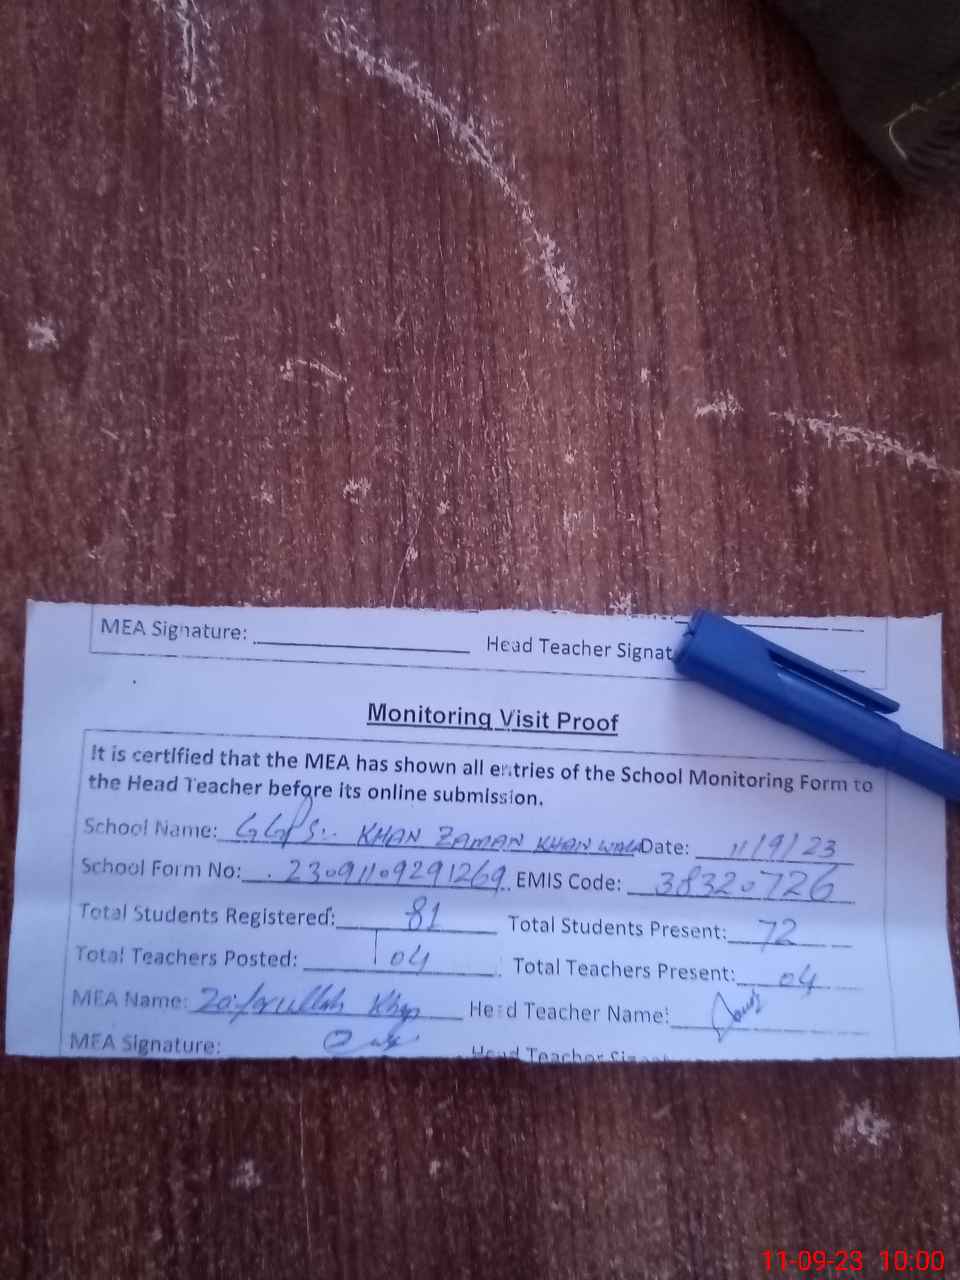 MEA Signature: Head Teacher Signat
Monitoring Visit Proof
It is certified that the MEA has shown all entries of the School Monitoring Form to
the Head Teacher before its online submission.
School Name: GGPS:- KHAN ZAMAN KHAN WALA Date: 11/9/23
School Form No: 23091109291269 EMIS Code: 38320726
Total Students Registered: 81 Total Students Present: 72
Total Teachers Posted: 04 Total Teachers Present: 04
MEA Name: Zafarullah Khan Head Teacher Name:
MEA Signature: Head Teacher Signat
11-09-23 10:00